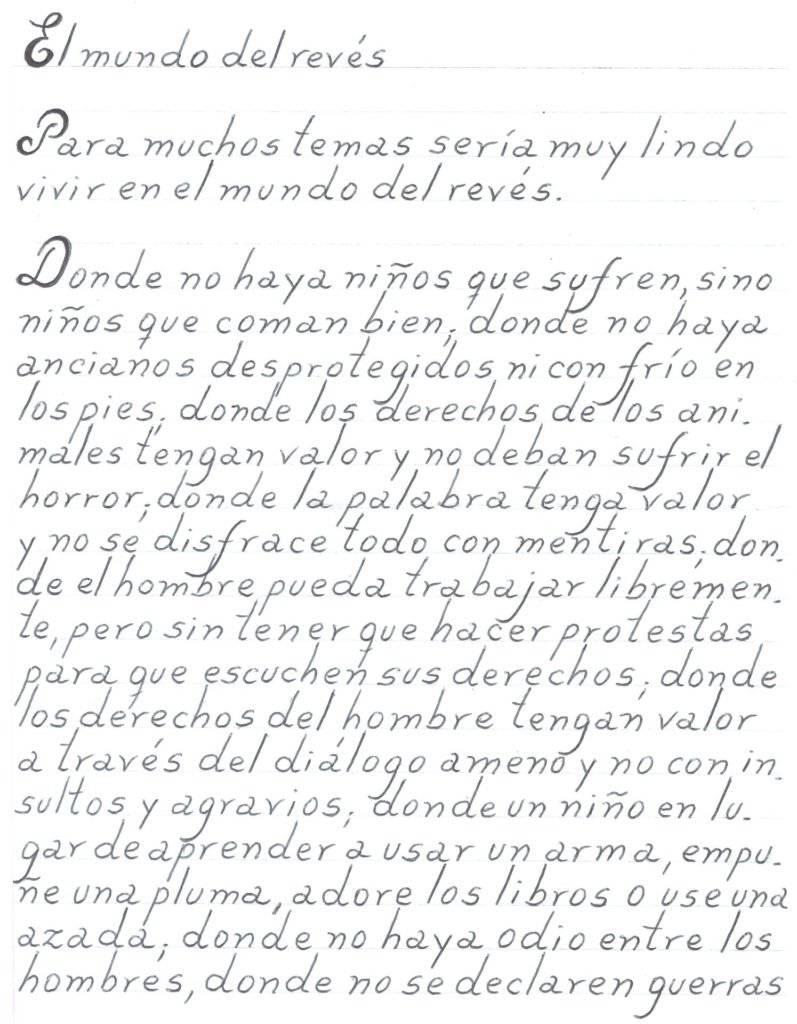 El mundo del revés
Para muchos temas sería muy lindo
vivir en el mundo del revés.
Donde no haya niños que sufren, sino
niños que coman bien; donde no haya
ancianos desprotegidos ni con frío en
los pies; donde los derechos de los ani-
males tengan valor y no deban sufrir el
horror; donde la palabra tenga valor
y no se disfrace todo con mentiras; don-
de el hombre pueda trabajar libremen-
te, pero sin tener que hacer protestas
para que escuchen sus derechos; donde
los derechos del hombre tengan valor
a través del diálogo ameno y no con in-
sultos y agravios; donde un niño en lu-
gar de aprender a usar un arma, empu-
ñe una pluma, adore los libros o use una
azada; donde no haya odio entre los
hombres, donde no se declaren guerras